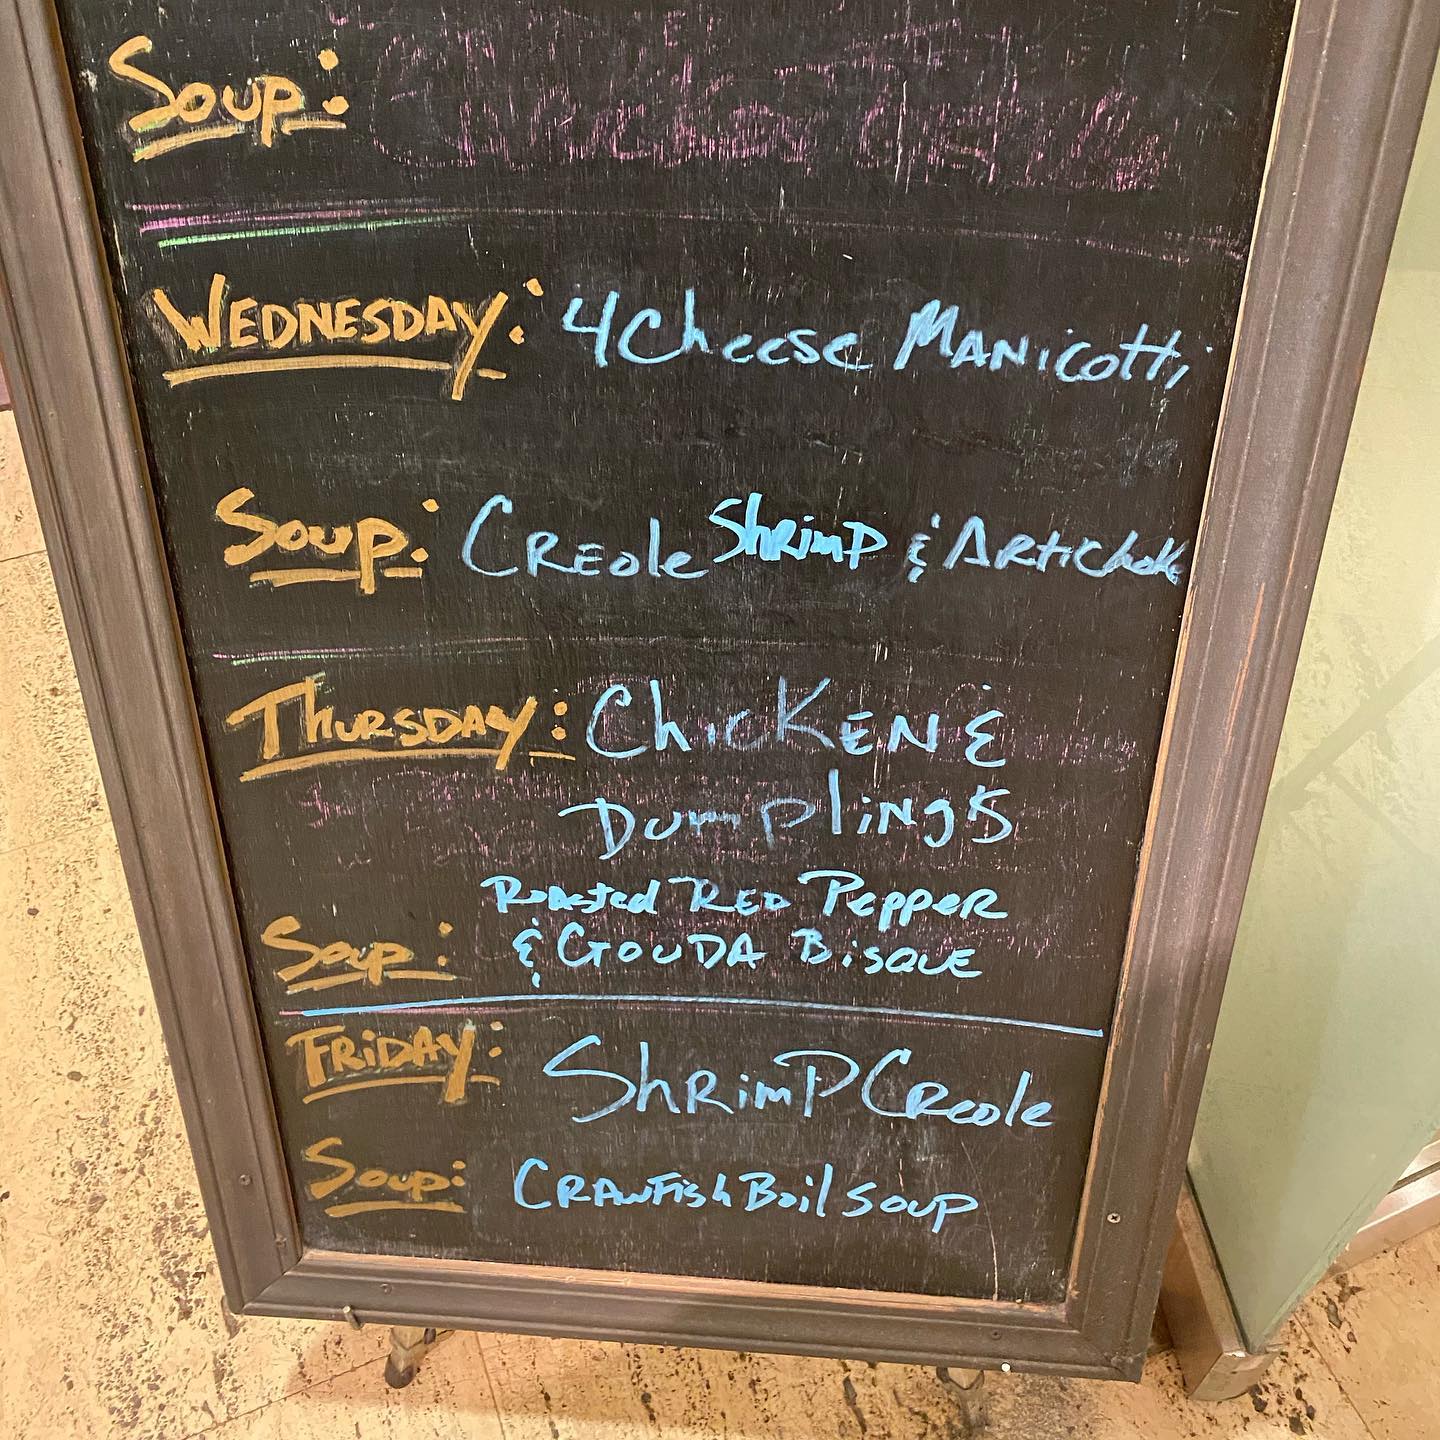 Soup: Chicken Tortilla
WEDNESDAY: 4 Cheese MANicotti
Soup: CREole ShRimP & ARtichoke
ThURSDAY: ChicKEN &
DumplinGS
Roasted RED PeppeR
Soup: & GOUDA BiSQUE
FRiDAY: ShRimP CReole
Soup: CRAWFish Boil Soup